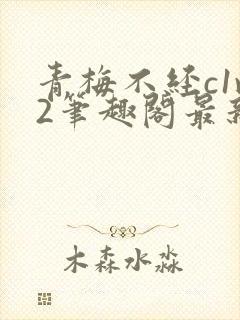 青梅不经c1v
2筆趣阁最新
木森水淼